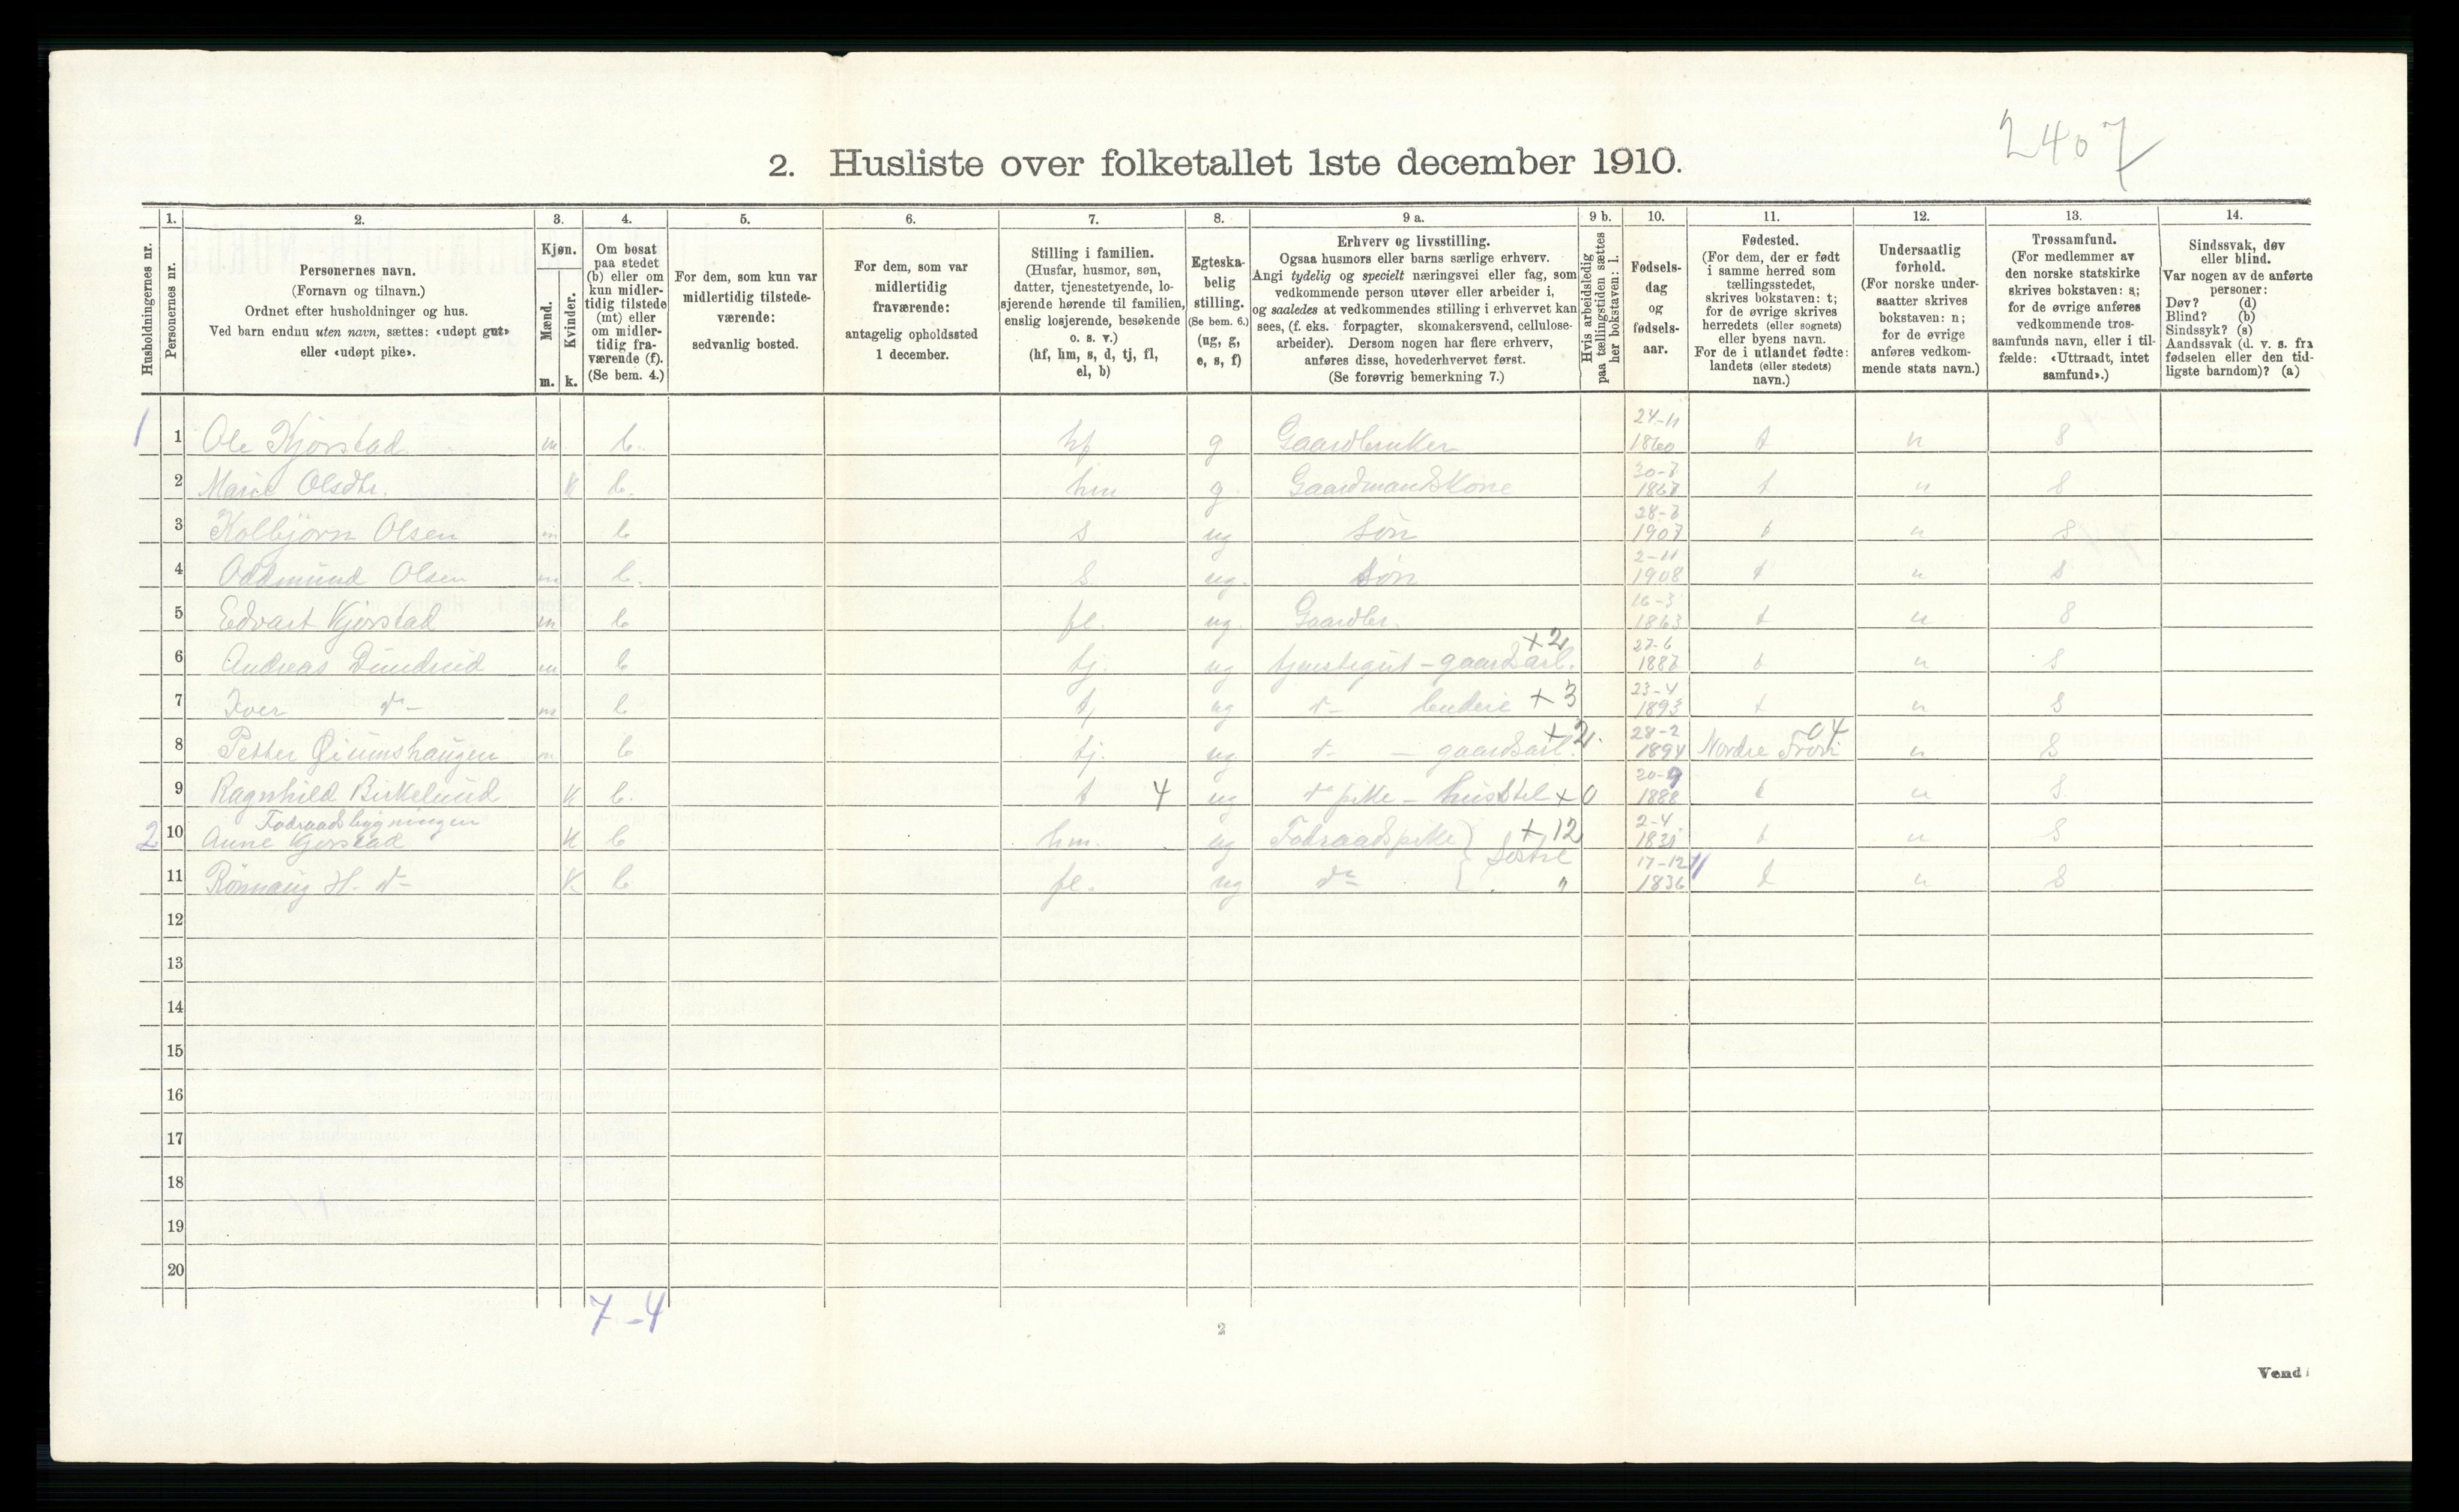 2407
2. Husliste over folketallet 1ste december 1910.
Husholdningernes nr.
1. Personernes nr.
2. Personernes navn.
(Fornavn og tilnavn.)
Ordnet efter husholdninger og hus.
Ved barn endnu uten navn, sættes: «udøpt gut»
eller «udøpt pike».
3. Kjøn.
Mænd. m.
Kvinder. k.
4. Om bosat
paa stedet
(b) eller om
kun midler-
tidig tilstede
(mt) eller
om midler-
tidig fra-
værende (f).
(Se bem. 4.)
5. For dem, som kun var
midlertidig tilstede-
værende:
sedvanlig bosted.
6. For dem, som var
midlertidig
fraværende:
antagelig opholdssted
1 december.
7. Stilling i familien.
(Husfar, husmor, søn,
datter, tjenestetyende, lo-
sjerende hørende til familien,
enslig losjerende, besøkende
o. s. v.)
(hf, hm, s, d, tj, fl,
el, b)
8. Egteska-
belig
stilling.
(Se bem. 6.)
(ug, g,
e, s, f)
9 a. Erhverv og livsstilling.
Ogsaa husmors eller barns særlige erhverv.
Angi tydelig og specielt næringsvei eller fag, som
vedkommende person utøver eller arbeider i,
og saaledes at vedkommendes stilling i erhvervet kan
sees, (f. eks. forpagter, skomakersvend, cellulose-
arbeider). Dersom nogen har flere erhverv,
anføres disse, hovederhvervet først.
(Se forøvrig bemerkning 7.)
9 b. Hvis arbeidsledig
paa tællingstiden sættes
her bokstaven: l.
10. Fødsels-
dag
og
fødsels-
aar.
11. Fødested.
(For dem, der er født
i samme herred som
tællingsstedet,
skrives bokstaven: t;
for de øvrige skrives
herredets (eller sognets)
eller byens navn.
For de i utlandet fødte:
landets (eller stedets)
navn.)
12. Undersaatlig
forhold.
(For norske under-
saatter skrives
bokstaven: n;
for de øvrige
anføres vedkom-
mende stats navn.)
13. Trossamfund.
(For medlemmer av
den norske statskirke
skrives bokstaven: s;
for de øvrige anføres
vedkommende tros-
samfunds navn, eller i til-
fælde: «Uttraadt, intet
samfund».)
14. Sindssvak, døv
eller blind.
Var nogen av de anførte
personer:
Døv? (d)
Blind? (b)
Sindssyk? (s)
Aandssvak (d. v. s. fra
fødselen eller den tid-
ligste barndom)? (a)
1 1 Ole Kjørstad m b. hf g Gaardbruker 24-11 1860 t n s
2 Marie Olsdtr. k b. hm g Gaardmandskone 30-7 t n s
3 Kolbjørn Olsen m b s ug Søn 1907 t n s
4 Oddmund Olsen m b. s ug. Søn 2-11 1908 t n s
5 Edvart Kjørstad m b fl. ug. Gaardbr. 16-3 1863 t n s
6 Andreas m b tj. ug tjenestegut - gaardsarb. +2 27-6 t n s
7 Iver do - m b ug do - +3 23-4 1893 t n s
8 Petter m b tj. ug do - gaardsarb. +2. 28-2 1894 Nordre Fron 04 n s
9 Ragnhild Birkelund k b. t 4 ug do pike - husstel +0 20-9 1888 t n s
Føderaadsbygningen
2 10 Anne Kjørstad k b hm. ug Føderaadspike } +12 2-4 t n s
11 Rønnaug H. do - k b fl. ug do " 17-12 1836 t n s
12
13
14
15
16
17
18
19
20
7-4
2
Vend!